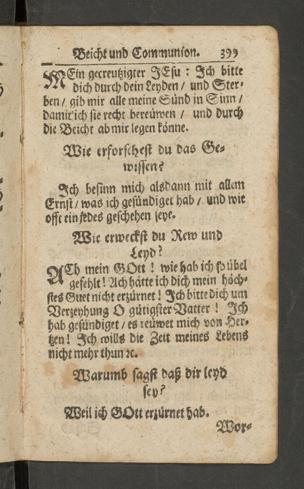 Beicht und Communion. 399
MEin gecreutzigter JEsu : Ich bitte
dich durch dein Leyden / und Ster-
ben / gib mir alle meine Sünd in Sinn /
damit ich sie recht bereüwen / und durch
die Beicht ab mir legen könne.
Wie erforschest du das Ge-
wissen?
Ich besinn mich alsdann mit allem
Ernst / was ich gesündiget hab / und wie
offt ein jedes geschehen seye.
Wie erweckst du Rew und
Leyd?
ACh mein GOtt ! wie hab ich so übel
gefehlt ! Ach hätte ich dich mein höch-
stes Guet nicht erzürnet ! Ich bitte dich um
Verzeyhung O gütigster Vatter ! Ich
hab gesündiget / es reüwet mich von Her-
tzen ! Ich wills die Zeit meines Lebens
nicht mehr thun ꝛc.
Warumb sagst daß dir leyd
sey?
Weil ich GOtt erzürnet hab.
Wor-